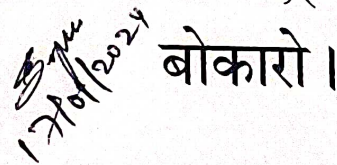 17/01/2024
बोकारो ।